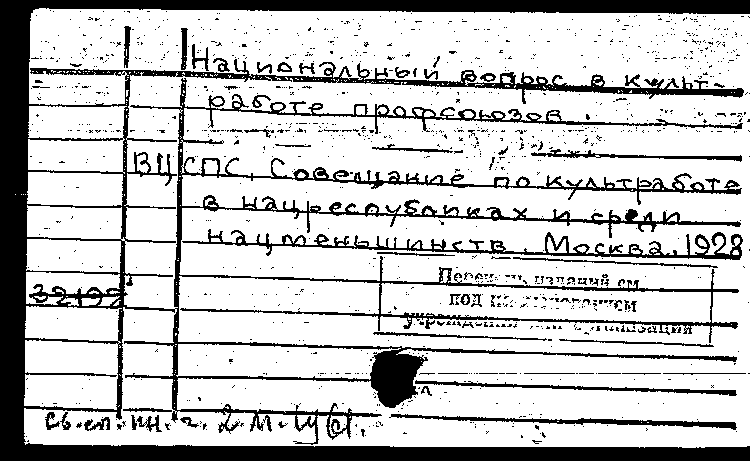 Национальный вопрос в культ-
работе профсоюзов.
ВЦСПС. Совещание по культработе
в нацреспубликах и среди
нацменьшинств. Москва, 1928
Перечень изданий см.
32192
под наименованием
учреждения или организации
2.М.